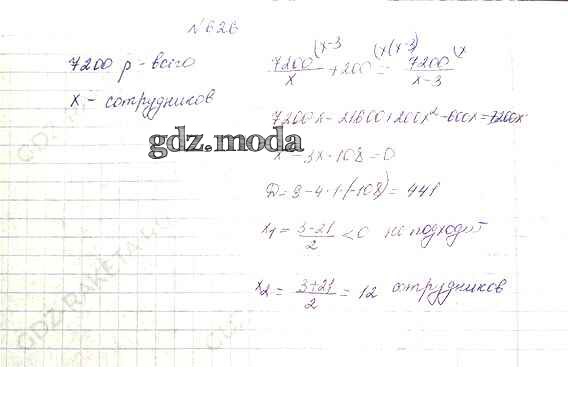 №626
7200 р - всего
x - сотрудников
7200/x (x-3 + 200 = (x(x-3) 7200/x-3 (x
7200x - 21600 + 200x² - 600x = 7200x
gdz.moda
x² - 3x - 108 = 0
D = 9 - 4·1·(-108) = 441
x₁ = 3-21/2 < 0 не подходит
x₂ = 3+21/2 = 12 сотрудников